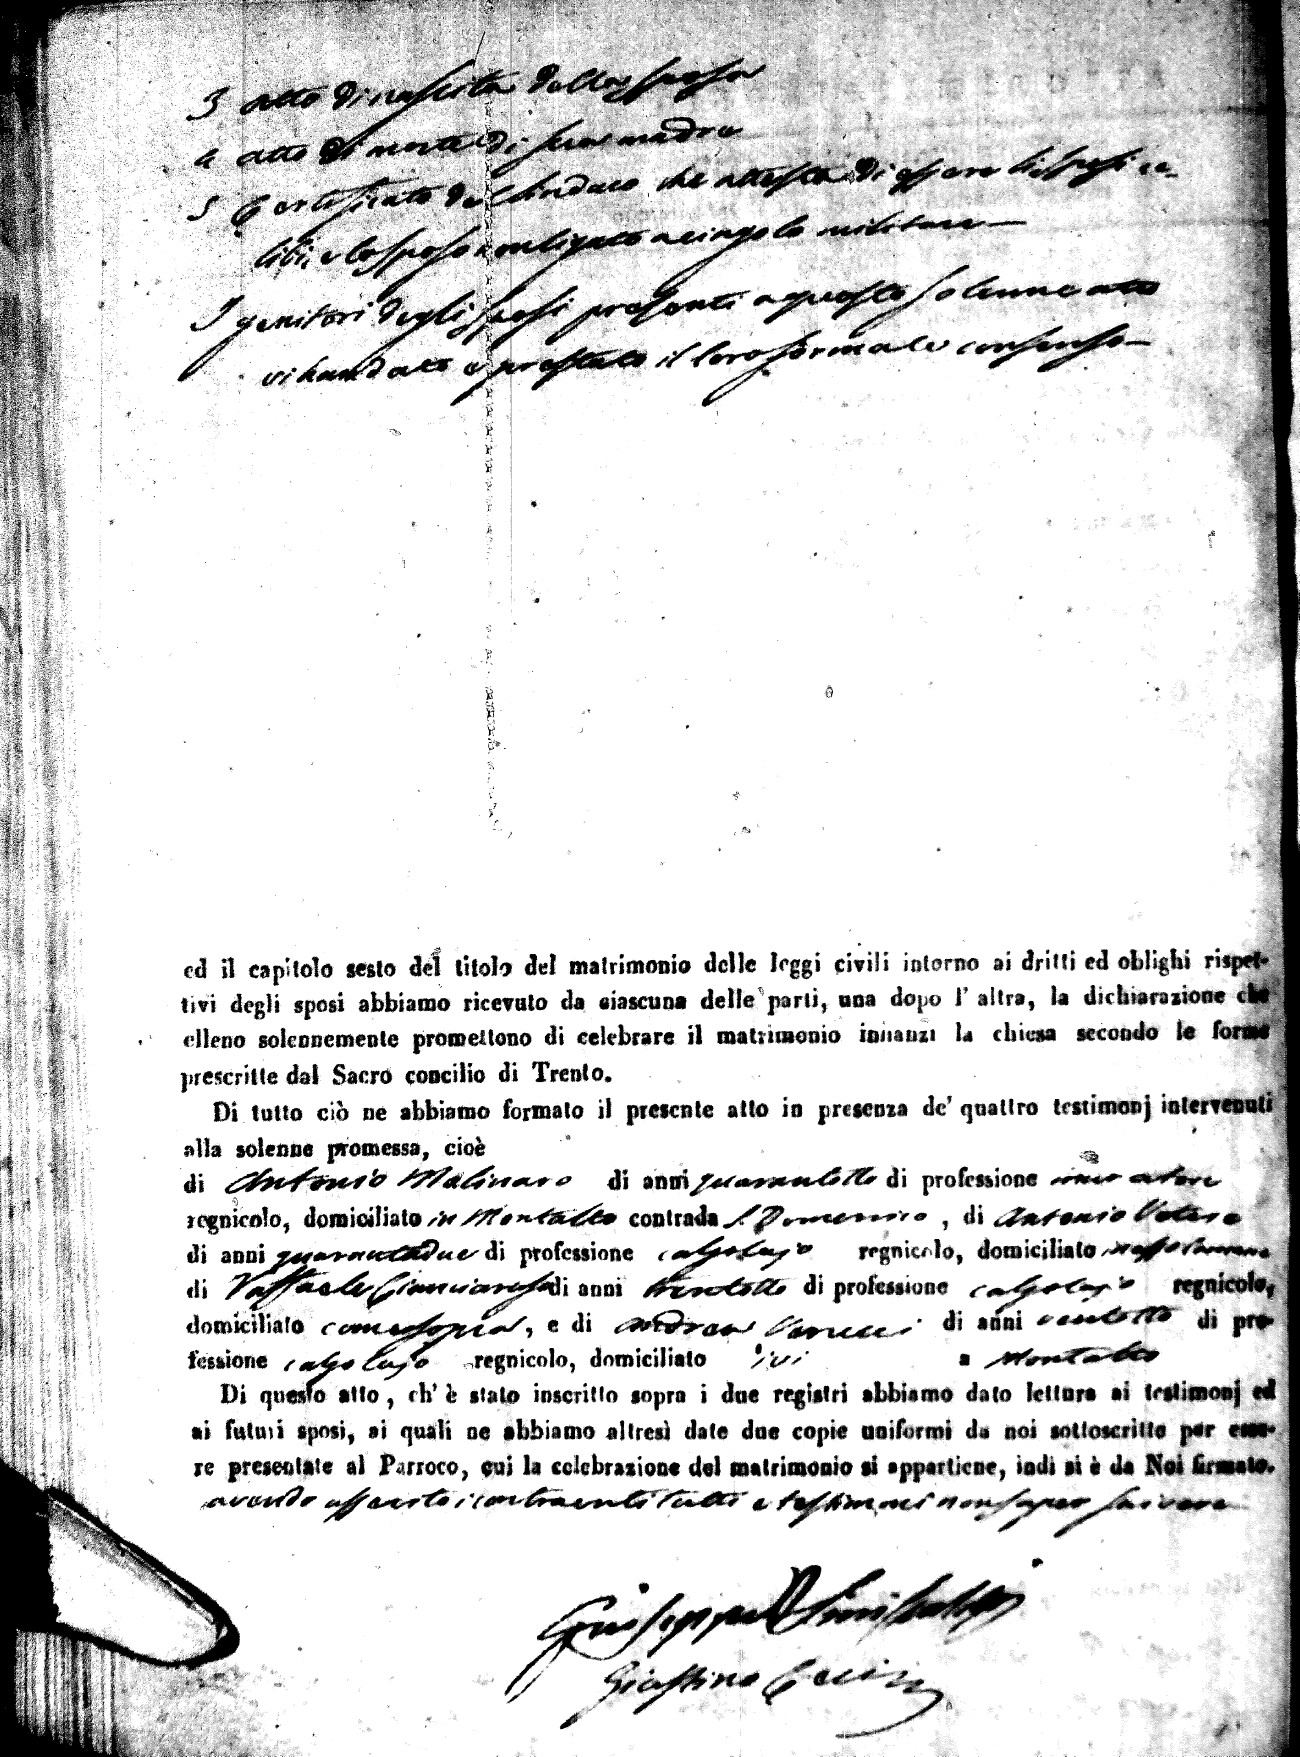 3 atto di nascita della sposa
4 atto di morte di sua madre
5 Certificato del Sindaco che attesta di essere li sposi ce-
libi, e lo sposo non ligato a cingolo militare
I genitori degli sposi presenti a questo solenne atto
vi han dato e prestato il loro formale consenso
ed il capitolo sesto del titolo del matrimonio delle leggi civili intorno ai dritti ed oblighi rispet-
tivi degli sposi abbiamo ricevuto da ciascuna delle parti, una dopo l' altra, la dichiarazione che
elleno solennemente promettono di celebrare il matrimonio innanzi la chiesa secondo le forme
prescritte dal Sacro concilio di Trento.
Di tutto ciò ne abbiamo formato il presente atto in presenza de' quattro testimonj intervenuti
alla solenne promessa, cioè
di Antonio Molinaro di anni quarantotto di professione
regnicolo, domiciliato in Montalto contrada S. Domenico, di Antonio Votere
di anni quarantadue di professione calzolajo regnicolo, domiciliato
di Raffaele di anni trentotto di professione calzolajo regnicolo,
domiciliato come sopra, e di Andrea di anni ventotto di pro-
fessione calzolajo regnicolo, domiciliato ivi a Montalto
Di questo atto, ch' è stato inscritto sopra i due registri abbiamo dato lettura ai testimonj ed
ai futuri sposi, ai quali ne abbiamo altresì date due copie uniformi da noi sottoscritte per esse-
re presentate al Parroco, cui la celebrazione del matrimonio si appartiene, indi si è da Noi firmato.
avendo asserito i contraenti tutti e testimoni non saper scrivere
Giuseppe
Giustino